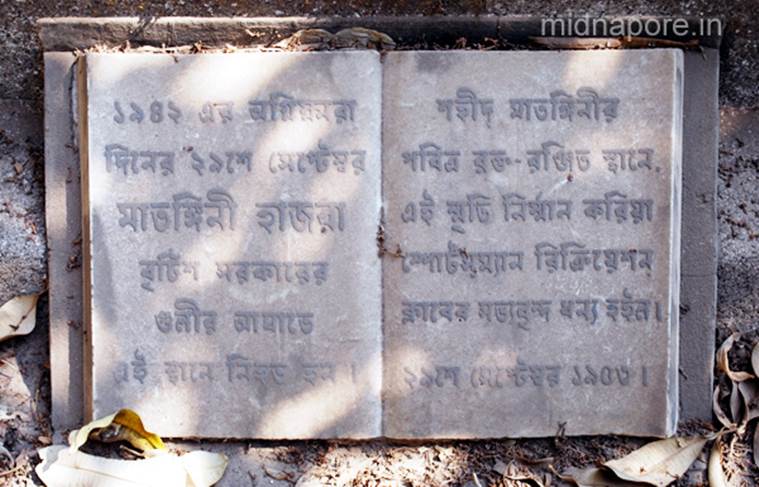 midnapore.in
১৯৪২ এর অগ্নিঝরা
দিনের ২৯শে সেপ্টেম্বর
মাতঙ্গিনী হাজরা
বৃটিশ সরকারের
গুলীর আঘাতে
এই স্থানে নিহত হন।
শহীদ মাতঙ্গিনীর
পবিত্র রক্ত-রঞ্জিত স্থানে,
এই স্মৃতি নির্মান করিয়া
স্পোর্টস্‌ম্যান রিক্রিয়েশন
ক্লাবের সভ্যবৃন্দ ধন্য হইল।
২৯শে সেপ্টেম্বর ১৯৫৩।